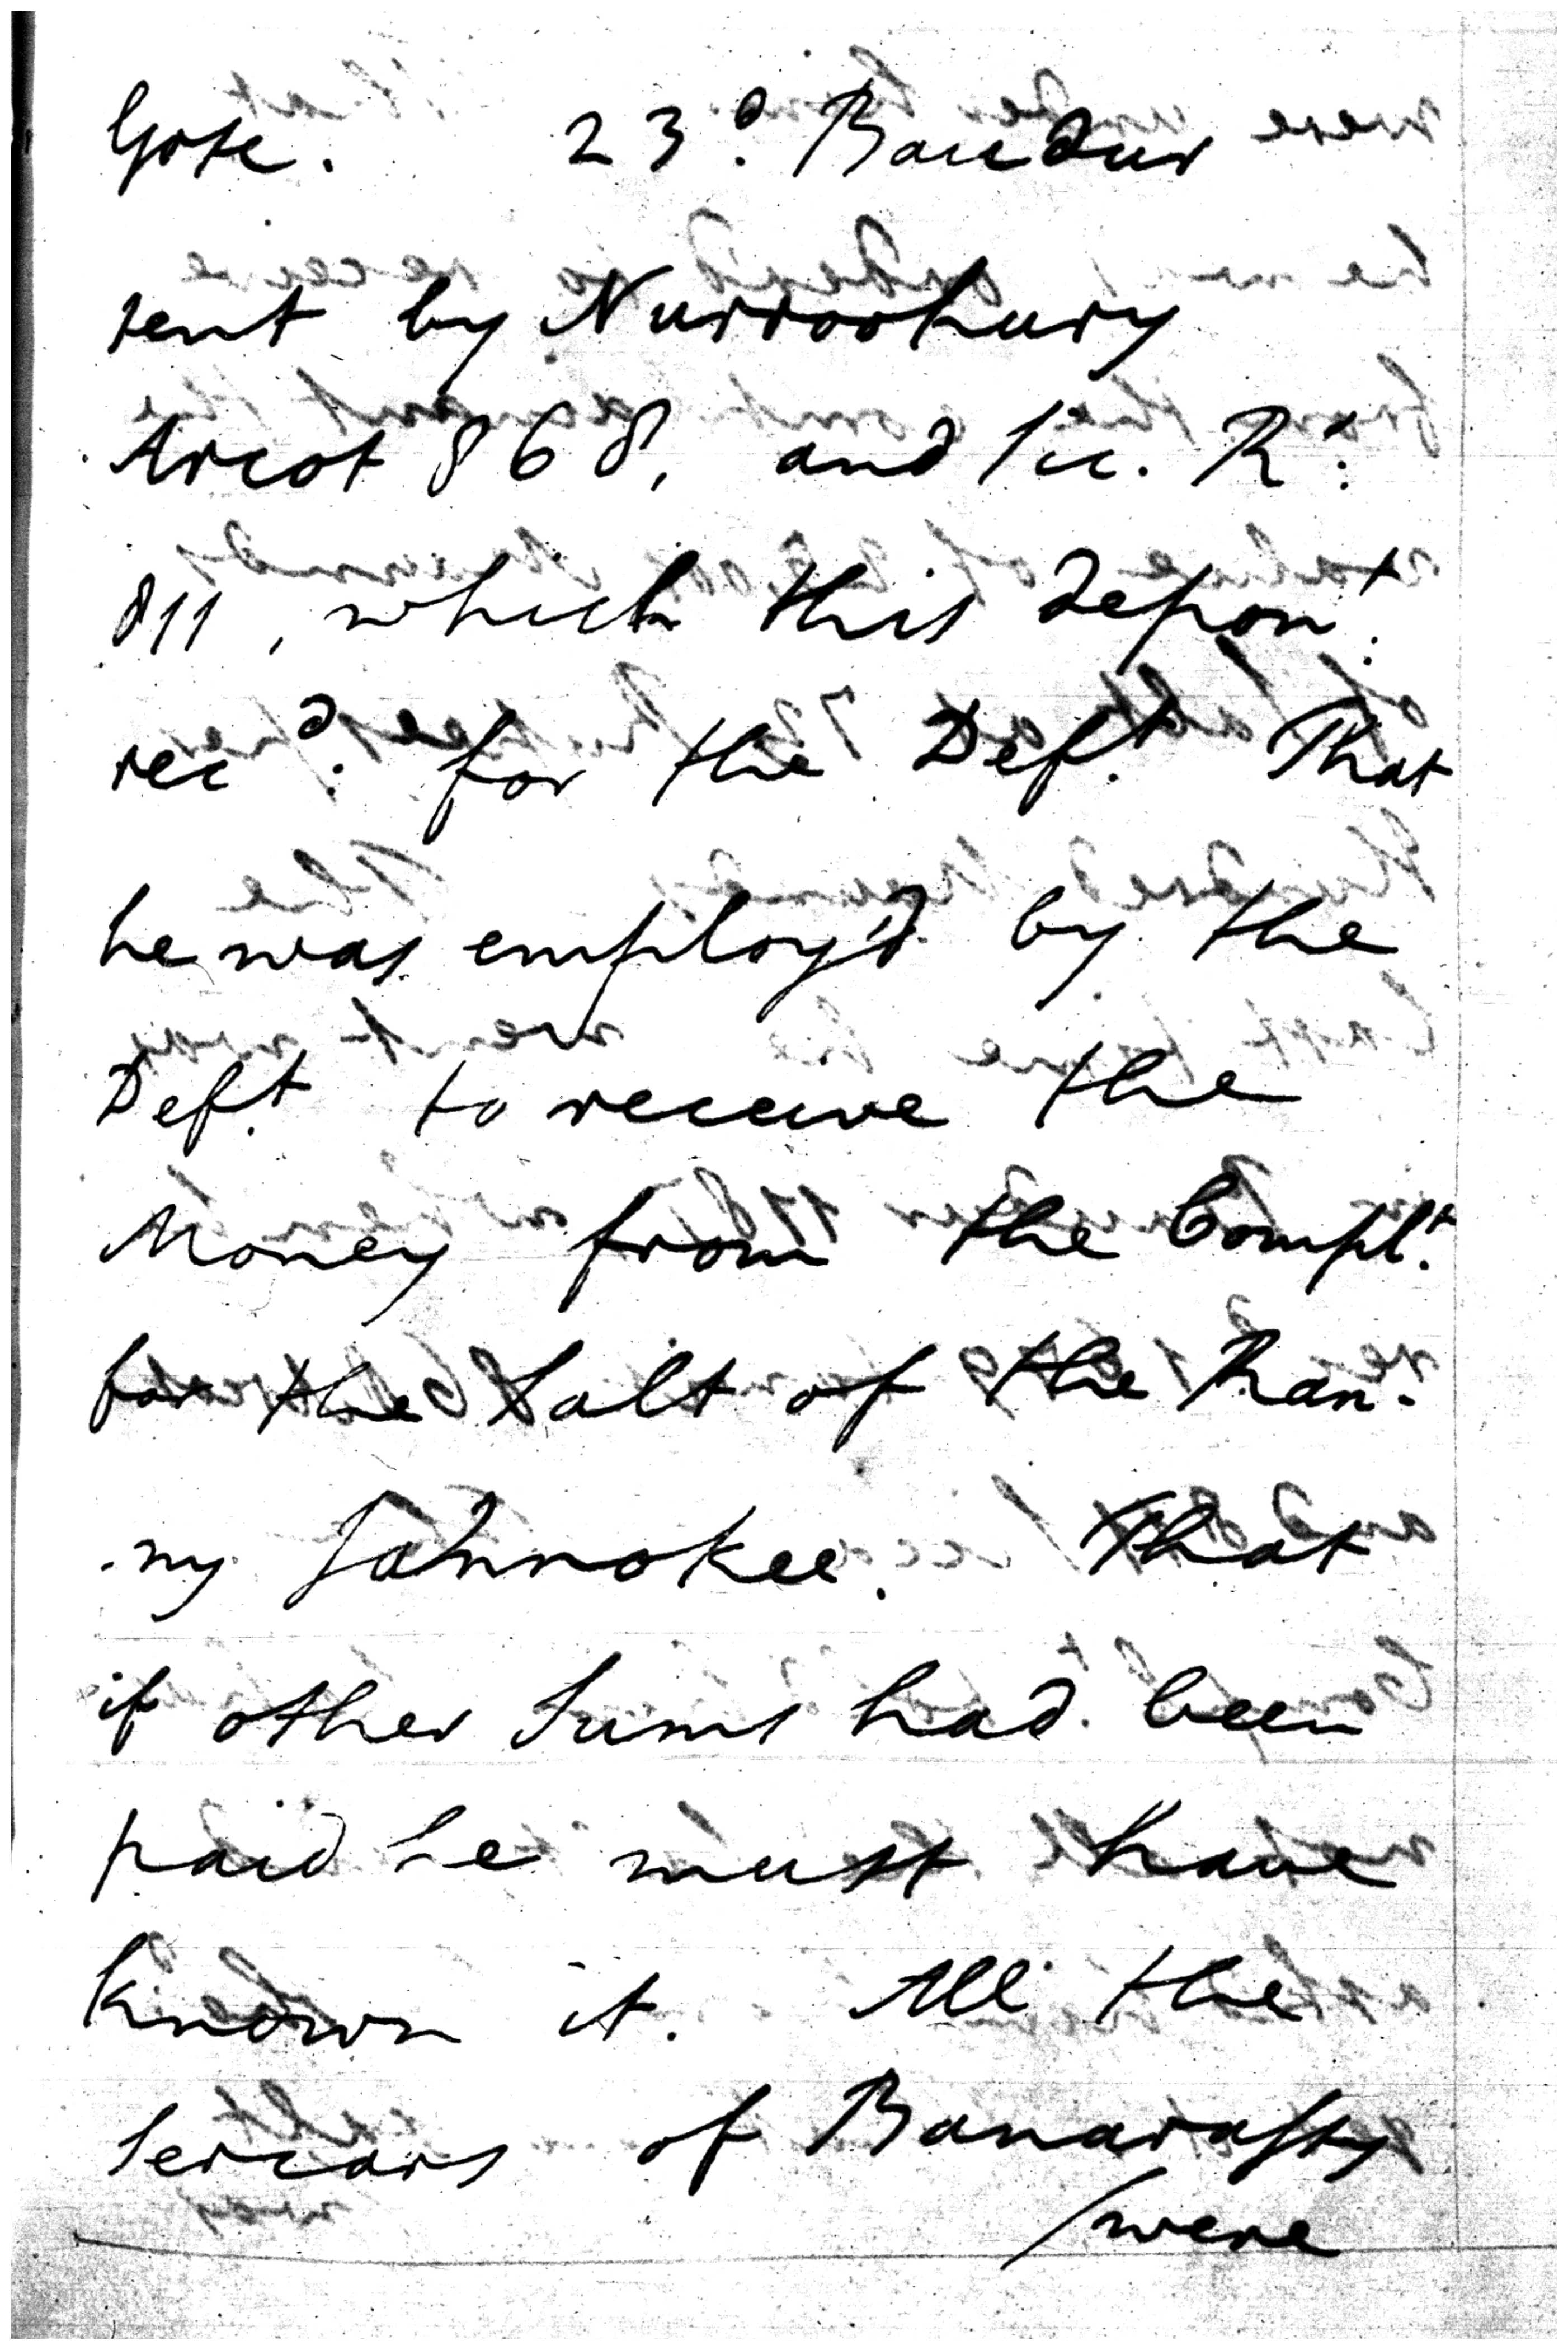 Gose. 23.d Baudur
sent by Nurroohury
Arcot 868, and Sic. Rs.
811, which this depon.t
rec.d for the Def.t That
he was employ'd by the
Def.t to receive the
Money from the Compl.t
for the Salt of the Ran-
-ny Jannokee. That
if other Sums had been
paid he must have
known it. All the
Sercars of Banarassy
/were